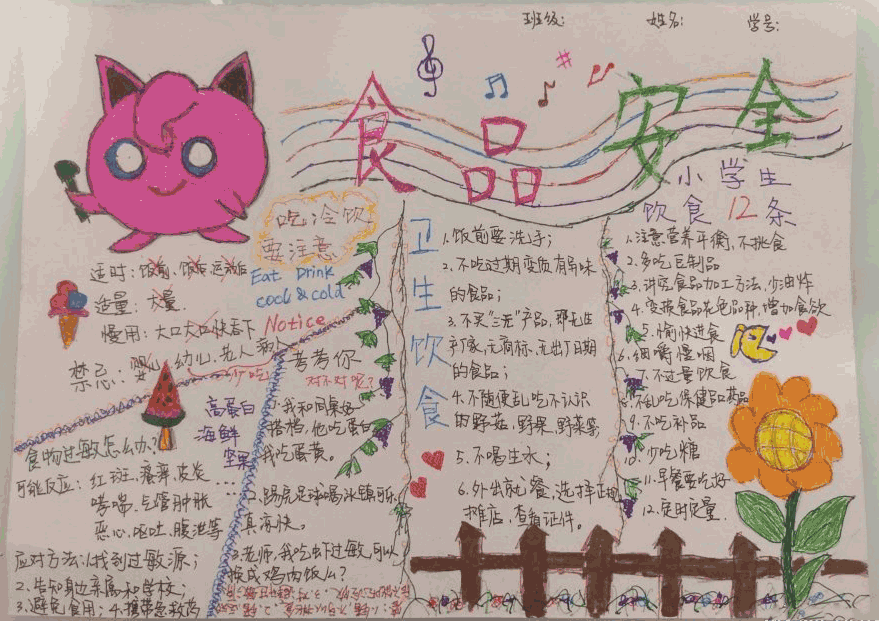 班级: 姓名: 学号:
食品安全
小学生
饮食12条
吃冷饮
要注意
Eat Drink
cock & cold
Notice
适时:饭前、饭后、运动后
适量:大量.
慢用:大口大口快吞下
禁忌:婴儿 幼儿.老人 病人
少吃
高蛋白
海鲜
坚果
食物过敏怎么办?
可能反应:红斑、荨麻疹、皮炎
哮喘、气管肿胀
恶心、呕吐、腹泄等
应对方法:1.找到过敏源;
2.告知身边亲属和学校;
3.避免食用;4.携带急救药
考考你
对不对呢?
1.我和同桌好
搭档,他吃蛋白
我吃蛋黄。
2.踢完足球喝冰镇可乐
真爽快。
3.老师,我吃虾过敏,可以
换成鸡肉饭么?
卫生饮食
1.饭前要洗手;
2.不吃过期变质有异味
的食品;
3.不买“三无”产品,那无生
产厂家,无商标,无出厂日期
的食品;
4.不随便乱吃不认识
的野菇,野果,野菜等
5.不喝生水;
6.外出就餐,选择正规
摊店,查看证件。
1.注意营养平衡,不挑食
2.多吃豆制品
3.讲究食品加工方法,少油炸
4.变换食品花色品种,增加食欲
5.愉快进食
6.细嚼慢咽
7.不过量饮食
8.不乱吃保健品药品
9.不吃补品
10.少吃糖
11.早餐要吃好
12.定时定量